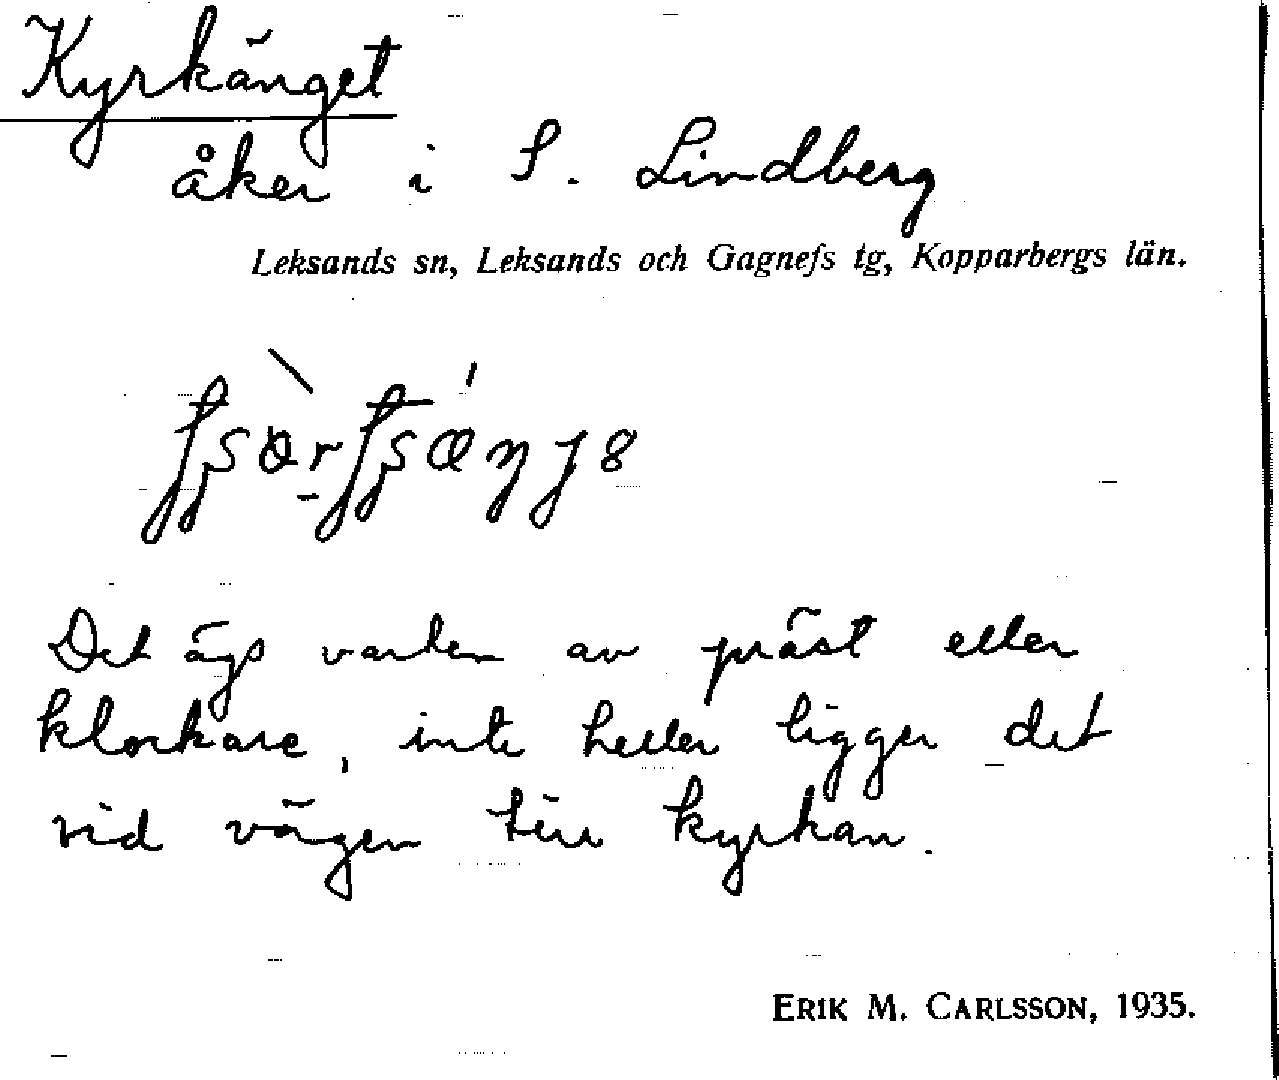 Kyrkänget
åker i S. Lindberg
Leksands sn, Leksands och Gagnefs tg, Kopparbergs län.
Det ägs varken av präst eller
klockare, inte heller ligger det
vid vägen till kyrkan.
ERIK M. CARLSSON, 1935.